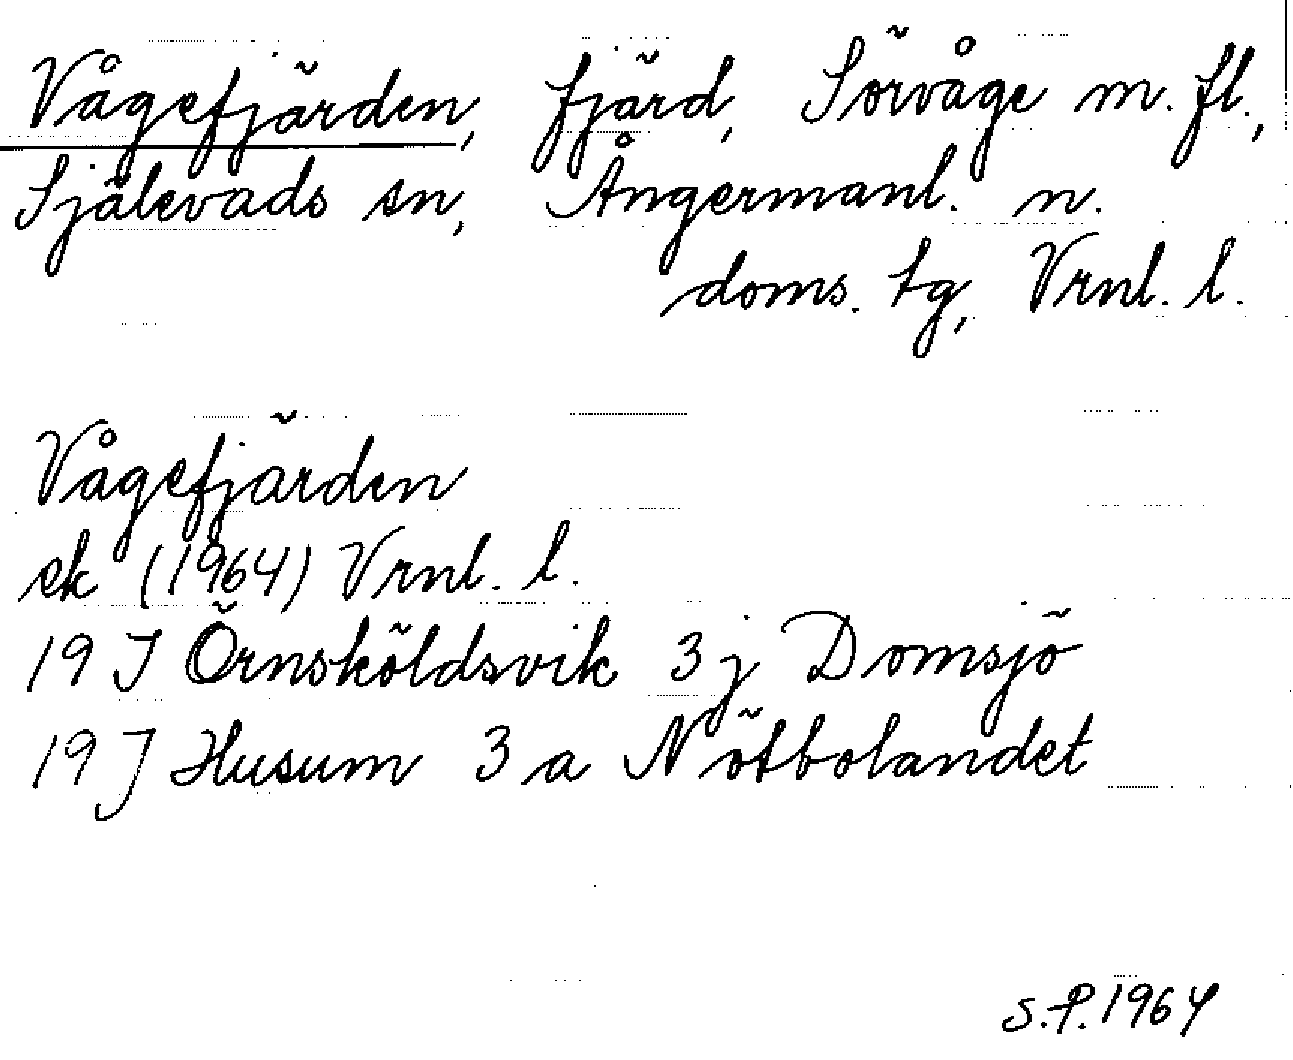 Vågefjärden, fjärd, Sörvåge m. fl.,
Själevads sn, Ångermanl. n.
doms. tg, Vrnl. l.
Vågefjärden
ek (1964) Vrnl. l.
19 I Örnsköldsvik 3 j Domsjö
19 J Husum 3 a Nötbolandet
S.P. 1964